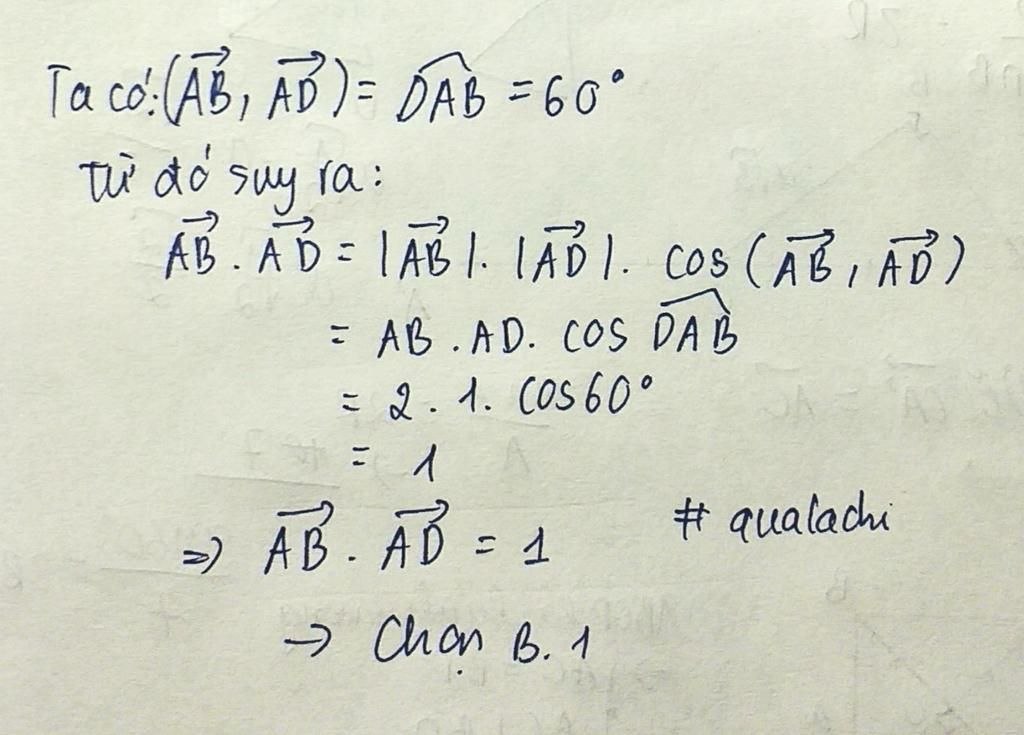 Ta có: (→AB, →AD) = DAB = 60°
từ đó suy ra:
→AB . →AD = |→AB|. |→AD|. cos (→AB, →AD)
= AB . AD. cos DAB
= 2 . 1. cos60°
= 1
=> →AB . →AD = 1
# qualachi
→ Chọn B. 1